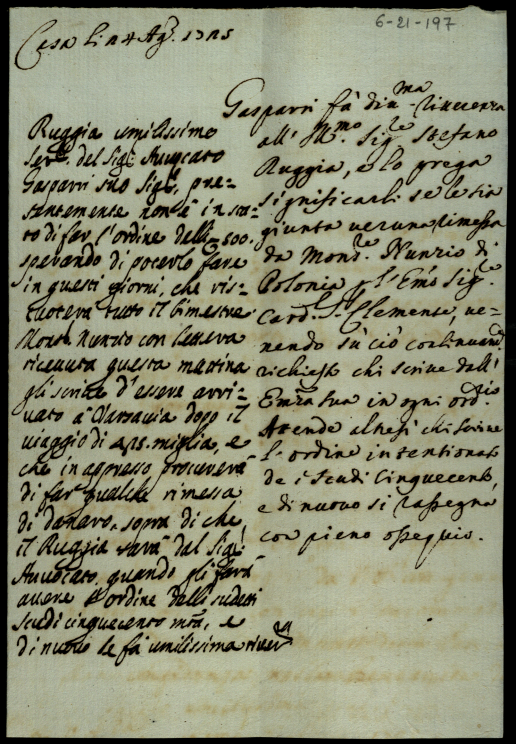 6-21-197
Casa li 4 Ag.
Gasparri fà div.ma riverenza
all' Ill.mo Sig.re Stefano
Ruggia, e lo prega
significarli se le sia
giunta veruna rimessa
da Mons.re Nunzio di
Polonia p l'Em.o Sig.re
Card.l S. Clemente, ve-
nendo sù ciò continuam.te
richiesto chi scrive dall'
Em.za Sua in ogni ord.rio
Attende altresì chi scrive
l'ordine intentionato
de i scudi cinquecento,
e di nuovo si rassegna
con pieno ossequio.
Ruggia umilissimo
Ser.re del Sig.r Avvocato
Gasparri suo Sig.re, pre-
sentemente non è in sta-
to di far l'ordine delli 500.
sperando di poterlo fare
in questi giorni, che ris-
cuoterà tutto il bimestre
Mons.r Nunzio con lettera
ricevuta questa mattina
gli scrive d'essere arri-
vato à Varsavia dopo il
viaggio di miglia, e
che in appresso procurerà
di far qualche rimessa
di danaro, sopra di che
il Ruggia sarà dal Sig.r
Avvocato, quando gli farà
avere l'ordine delli sudetti
scudi cinquecento m.ta, e
di nuovo le fà umilissima river.za